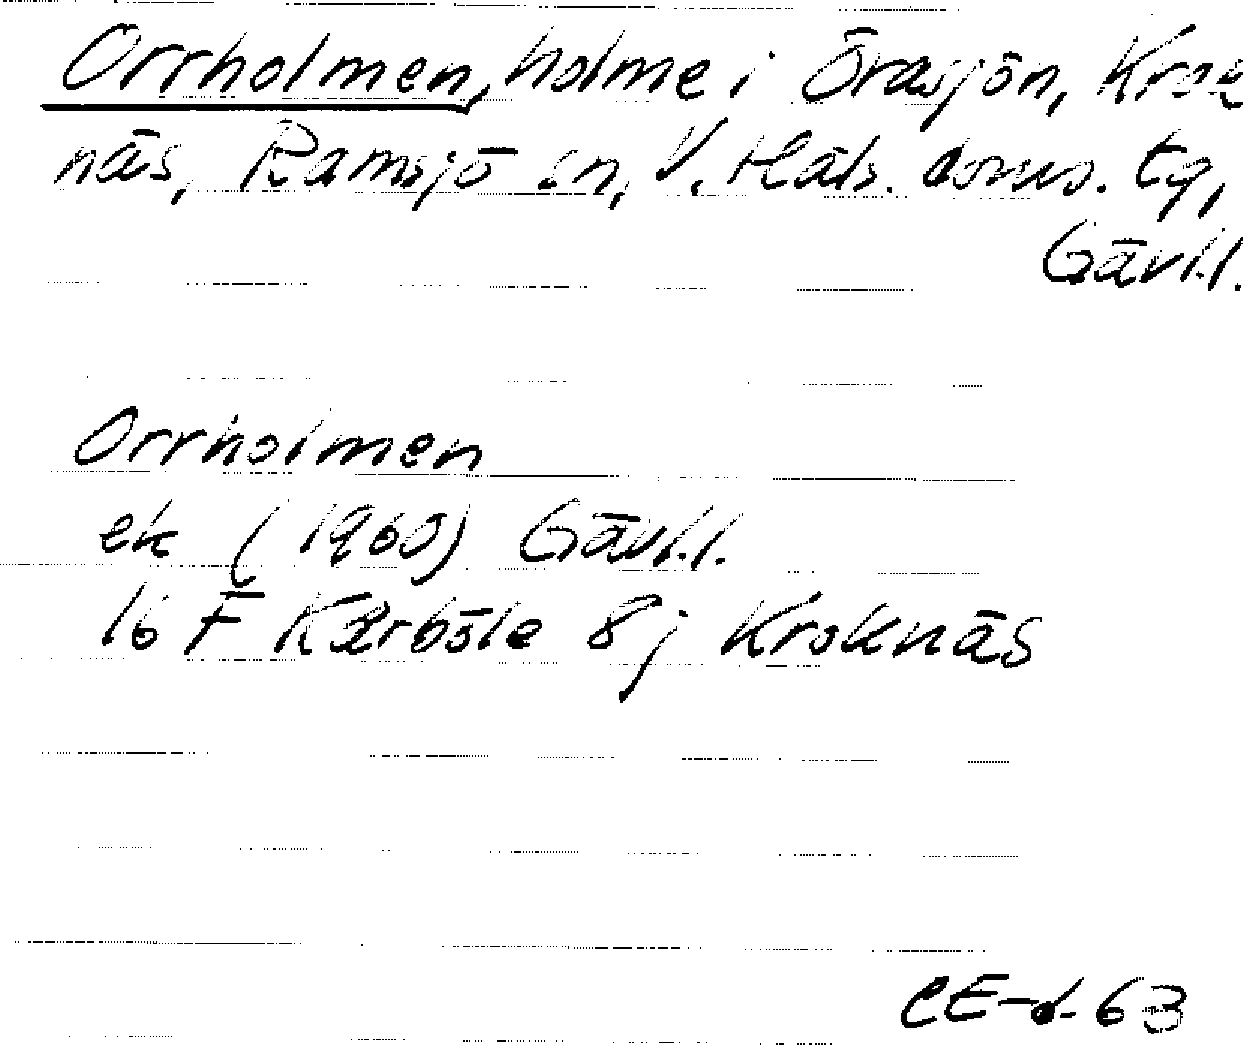 Orrholmen, holme i Öräsjön, Krok
näs, Ramsjö sn, V. Häls. doms. tg,
Gävl.l.
Orrholmen
ek (1960) Gävl.l.
16 F Kårböle 8 j Kroknäs
CE-d-63